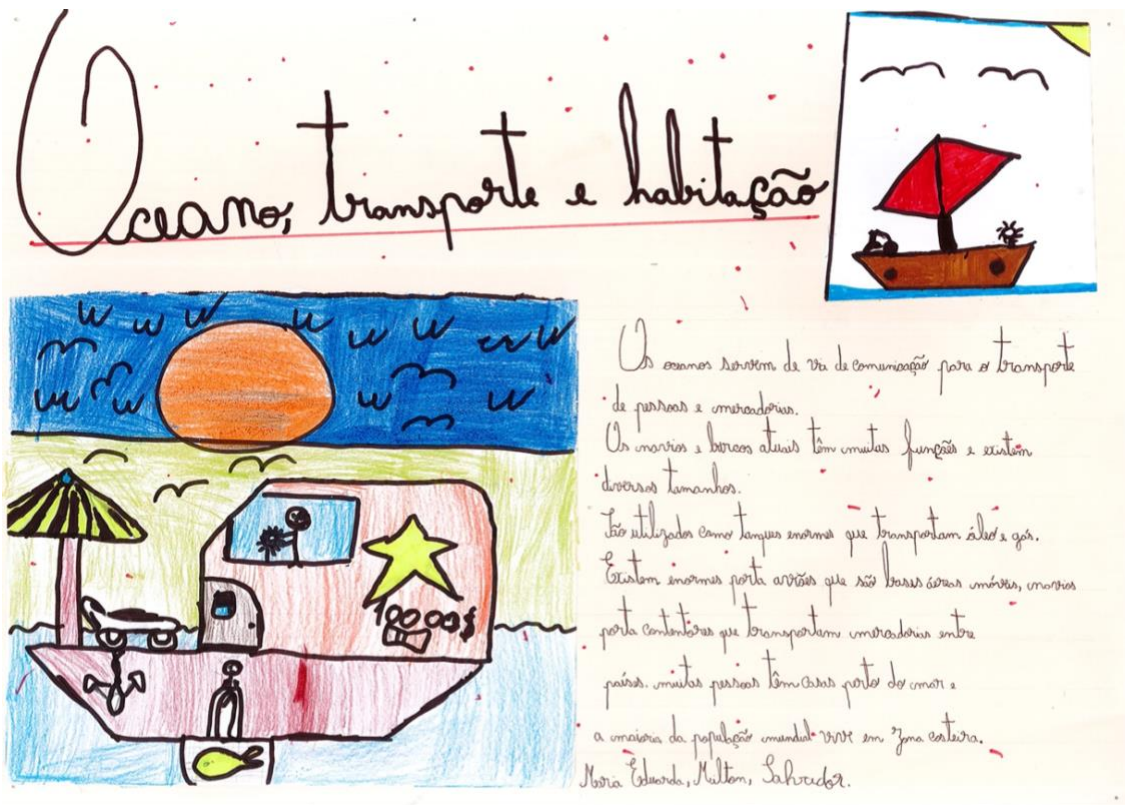 Oceano, transporte e habitação
Os oceanos servem de via de comunicação para o transporte
de pessoas e mercadorias.
Os navios e barcos atuais têm muitas funções e existem
diversos tamanhos.
São utilizados como tanques enormes que transportam óleo e gás.
Existem enormes porta aviões que são bases aéreas móveis, navios
porta contentores que transportam mercadorias entre
países. muitas pessoas têm casas perto do mar e
a maioria da população mundial vive em zona costeira.
Maria Eduarda, Milton, Salvador.
10000$